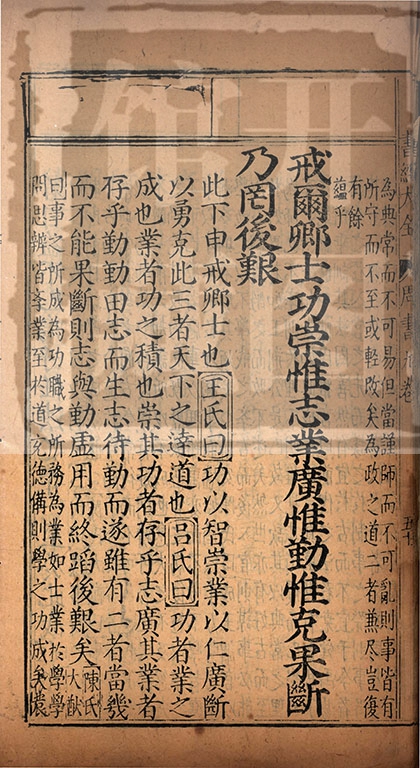 書經大全 周書
為典常而不可易但當謹師而不可亂則事皆有
所守而不至或輕敗矣為政之道二者兼尽豈復
有餘
蘊乎
戒爾卿士功崇惟志業廣惟勤惟克果斷
乃罔後艱
此下申戒卿士也王氏曰功以智崇業以仁廣斷
以勇克此三者天下之達道也呂氏曰功者業之
成也業者功之積也崇其功者存乎志廣其業者
存乎勤勤由志而生志待勤而遂雖有二者當幾
而不能果斷則志與勤虛用而終蹈後艱矣陳氏
大猷
曰事之所成為功職之所務為業如士業於學學
問思辨皆斈業至於道充德備則學之功成矣袁